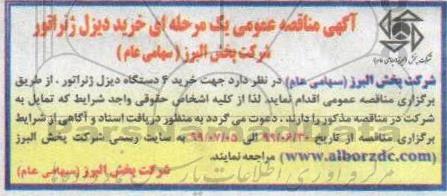 آگهی مناقصه عمومی یک مرحله ای خرید دیزل ژنراتور
شرکت پخش البرز ( سهامی عام )
شرکت پخش البرز (سهامی عام) در نظر دارد جهت خرید ۶ دستگاه دیزل ژنراتور ، از طریق
برگزاری مناقصه عمومی اقدام نماید. لذا از کلیه اشخاص حقوقی واجد شرایط که تمایل به
شرکت در مناقصه مذکور را دارند . دعوت می گردد به منظور دریافت اسناد و آگاهی از شرایط
برگزاری مناقصه از تاریخ ۹۹/۰۶/۳۰ الی ۹۹/۰۷/۰۵ به سایت رسمی شرکت پخش البرز
(www.alborzdc.com) مراجعه نمایند.
شرکت پخش البرز (سهامی عام)